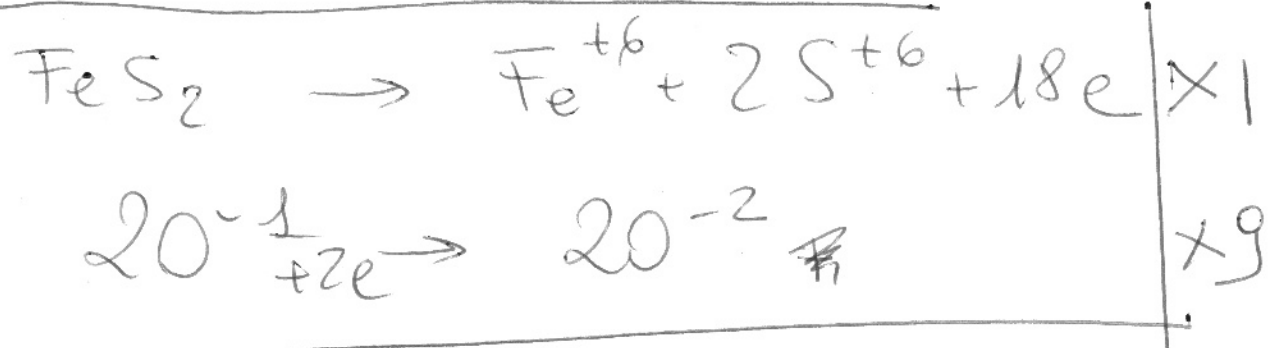 FeS₂ → Fe⁺⁶ + 2S⁺⁶ + 18e | ×1
2O⁻¹ +2e → 2O⁻² | ×9